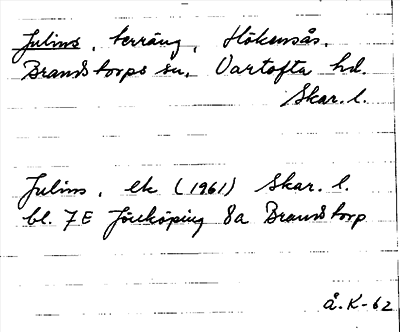 Julius, terräng, Hökensås.
Brandstorps sn. Vartofta hd.
Skar. l.
Julius, ek (1961) Skar. l.
bl. 7E Jönköping 8a Brandstorp
å. K-62